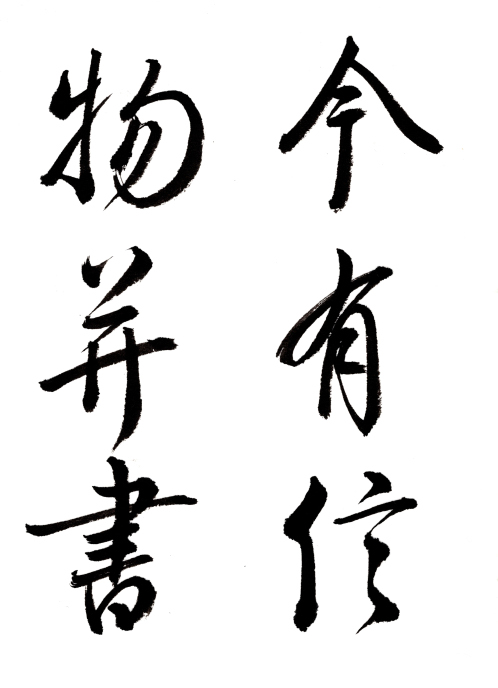 今有信
物并書